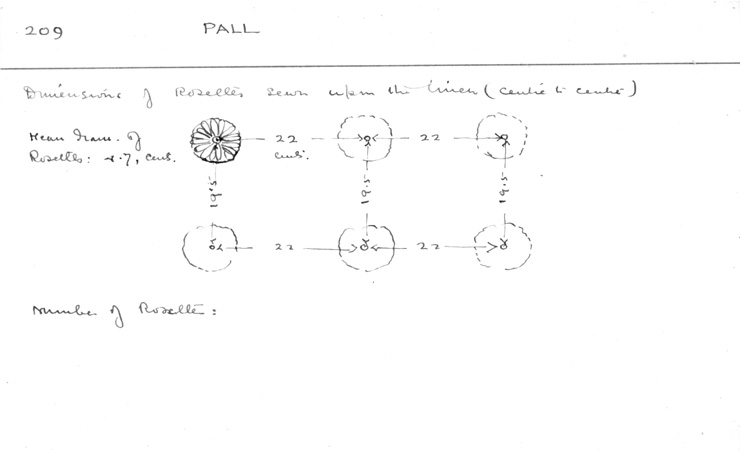 209 PALL
Dimensions of Rosettes sewn upon the linen (centre to centre)
Mean diam. of
Rosettes: 4.7, cens.
22
cens.
22
19.5
19.5
19.5
22
22
Number of Rosettes: